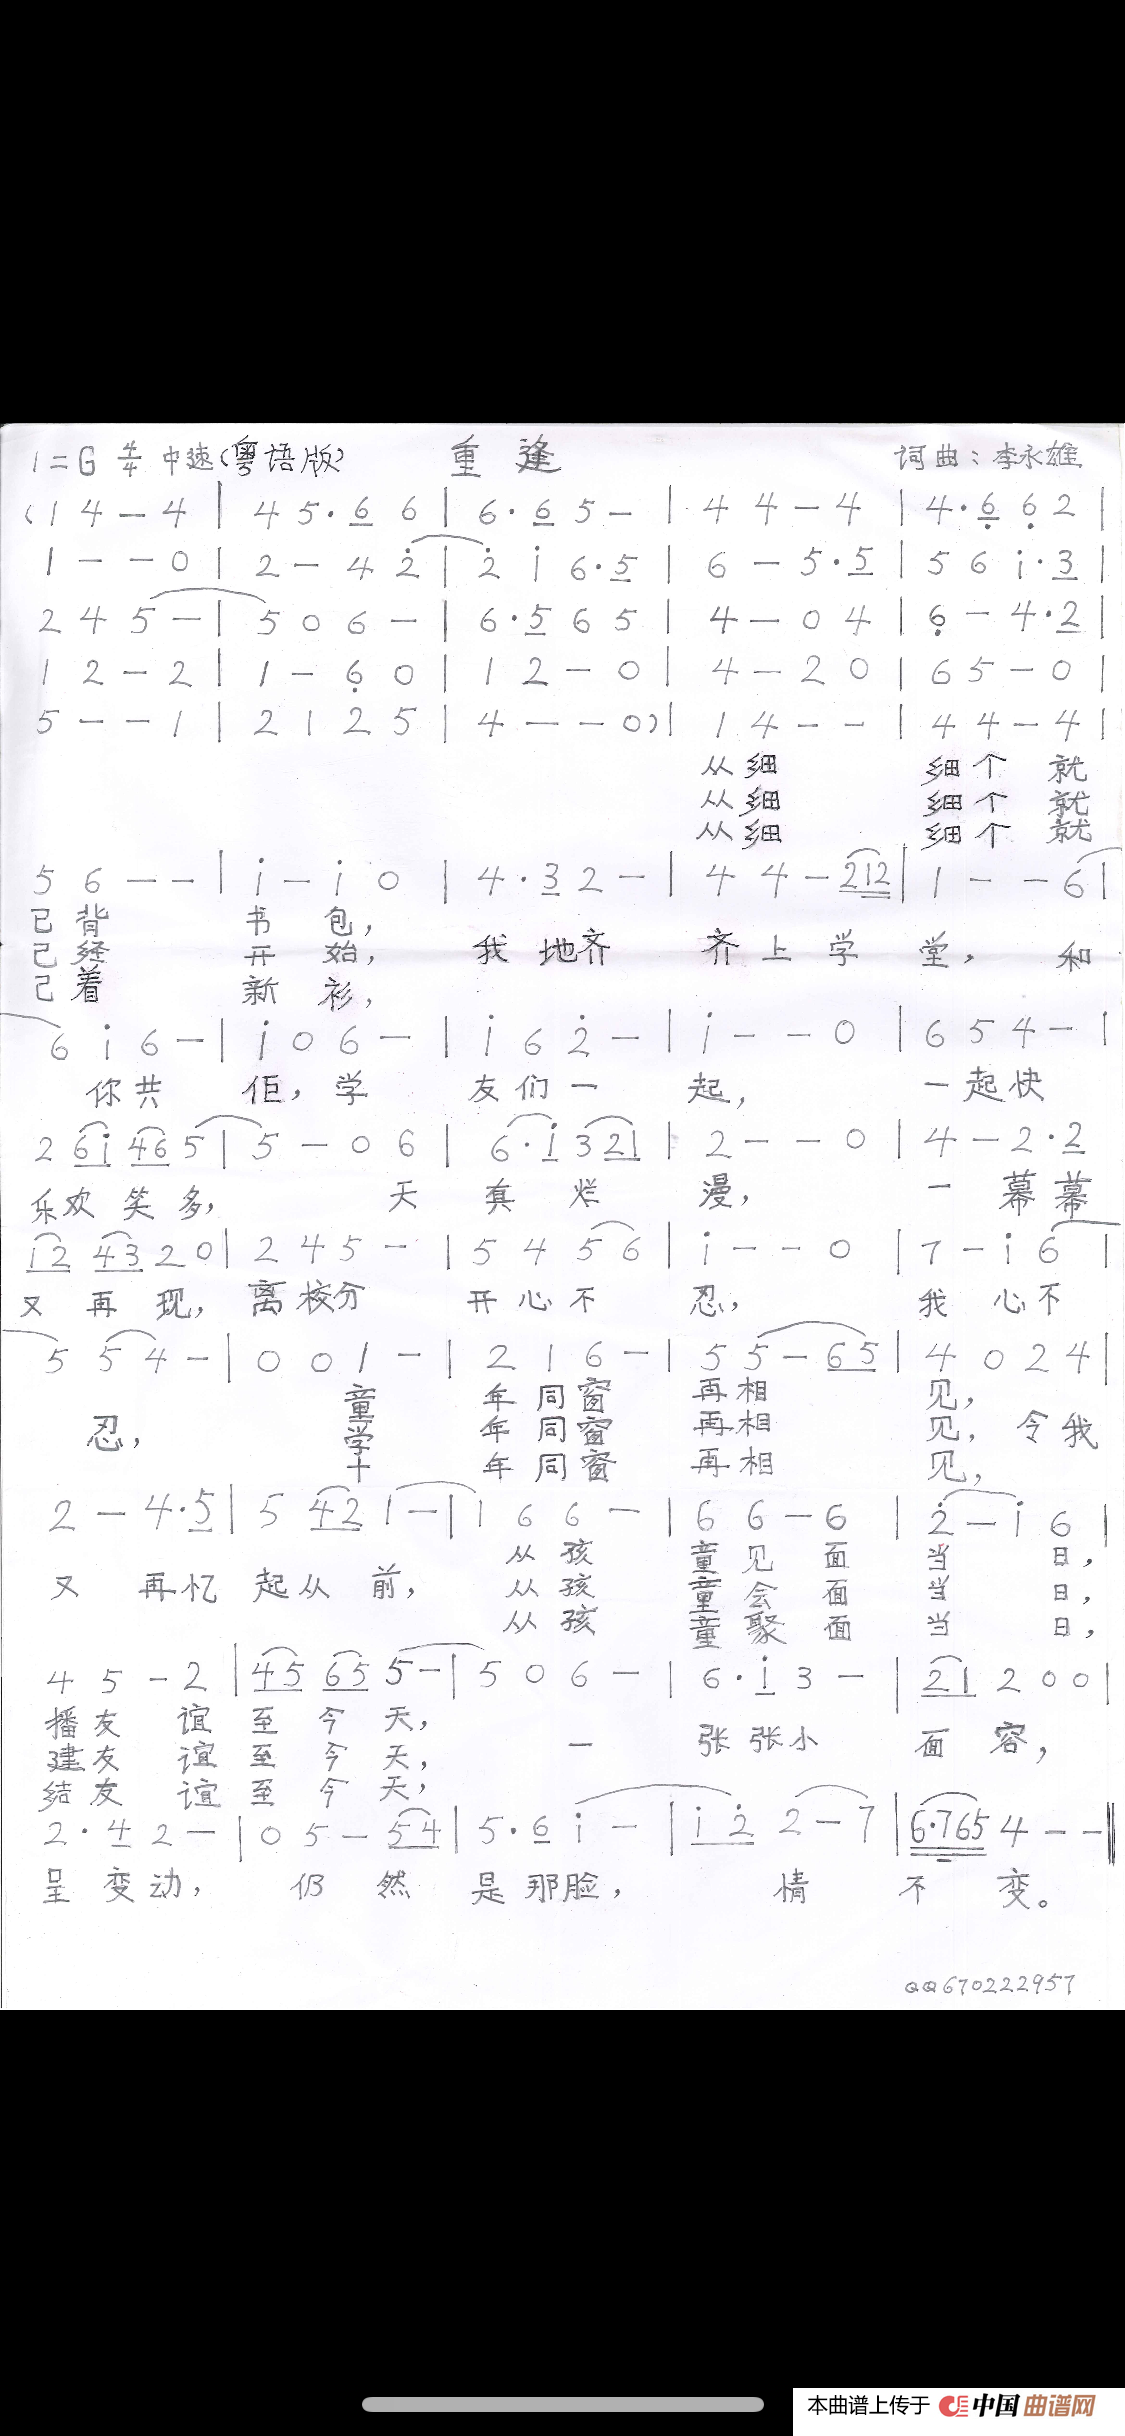 1=G 4/4 中速(粤语版) 重逢 词曲:李永雄
(1 4 — 4 | 4 5 · 6 6 | 6 · 6 5 — | 4 4 — 4 | 4 · 6̣ 6̣ 2 |
1 — — 0 | 2 — 4 2̇ | 2̇ i 6 · 5 | 6 — 5 · 5 | 5 6 i · 3 |
2 4 5 — | 5 0 6 — | 6 · 5 6 5 | 4 — 0 4 | 6̣ — 4 · 2 |
1 2 — 2 | 1 — 6̣ 0 | 1 2 — 0 | 4 — 2 0 | 6 5 — 0 |
5 — — 1 | 2 1 2 5 | 4 — — 0) | 1 4 — — | 4 4 — 4 |
从细 细个 就
从细 细个 就
从细 细个 就
5 6 — — | i — i 0 | 4 · 3 2 — | 4 4 — 212 | 1 — — 6 |
已背 书 包,
已经 开 始, 我地齐 齐上学 堂, 和
已着 新 衫,
6 i 6 — | i 0 6 — | i 6 2̇ — | i — — 0 | 6 5 4 — |
你共 佢,学 友们一 起, 一起快
2 6i 46 5 | 5 — 0 6 | 6 · i 3 21 | 2 — — 0 | 4 — 2 · 2
乐欢笑多, 天 真 烂 漫, 一 幕幕
i2 43 2 0 | 2 4 5 — | 5 4 5 6 | i — — 0 | 7 — i 6 |
又 再 现, 离校分 开心不 忍, 我 心不
5 5 4 — | 0 0 1 — | 2 1 6 — | 5 5 — 65 | 4 0 2 4 |
童 年同窗 再相 见,
忍, 学 年同窗 再相 见,令我
十 年同窗 再相 见,
2 — 4 · 5 | 5 42 1 — | 1 6 6 — | 6 6 — 6 | 2̇ — i 6 |
从 孩 童见 面 当 日,
又 再忆 起从 前, 从 孩 童会 面 当 日,
从 孩 童聚 面 当 日,
4 5 — 2 | 45 65 5 — | 5 0 6 — | 6 · i 3 — | 21 2 0 0 |
播友 谊 至 今 天,
建友 谊 至 今 天, 一 张张小 面 容,
结友 谊 至 今 天,
2 · 4 2 — | 0 5 — 54 | 5 · 6 i — | i 2̇ 2 — 7 | 6·765 4 — — ‖
呈 变动, 仍 然 是那脸, 情 不 变。
QQ670222957
本曲谱上传于 中国曲谱网